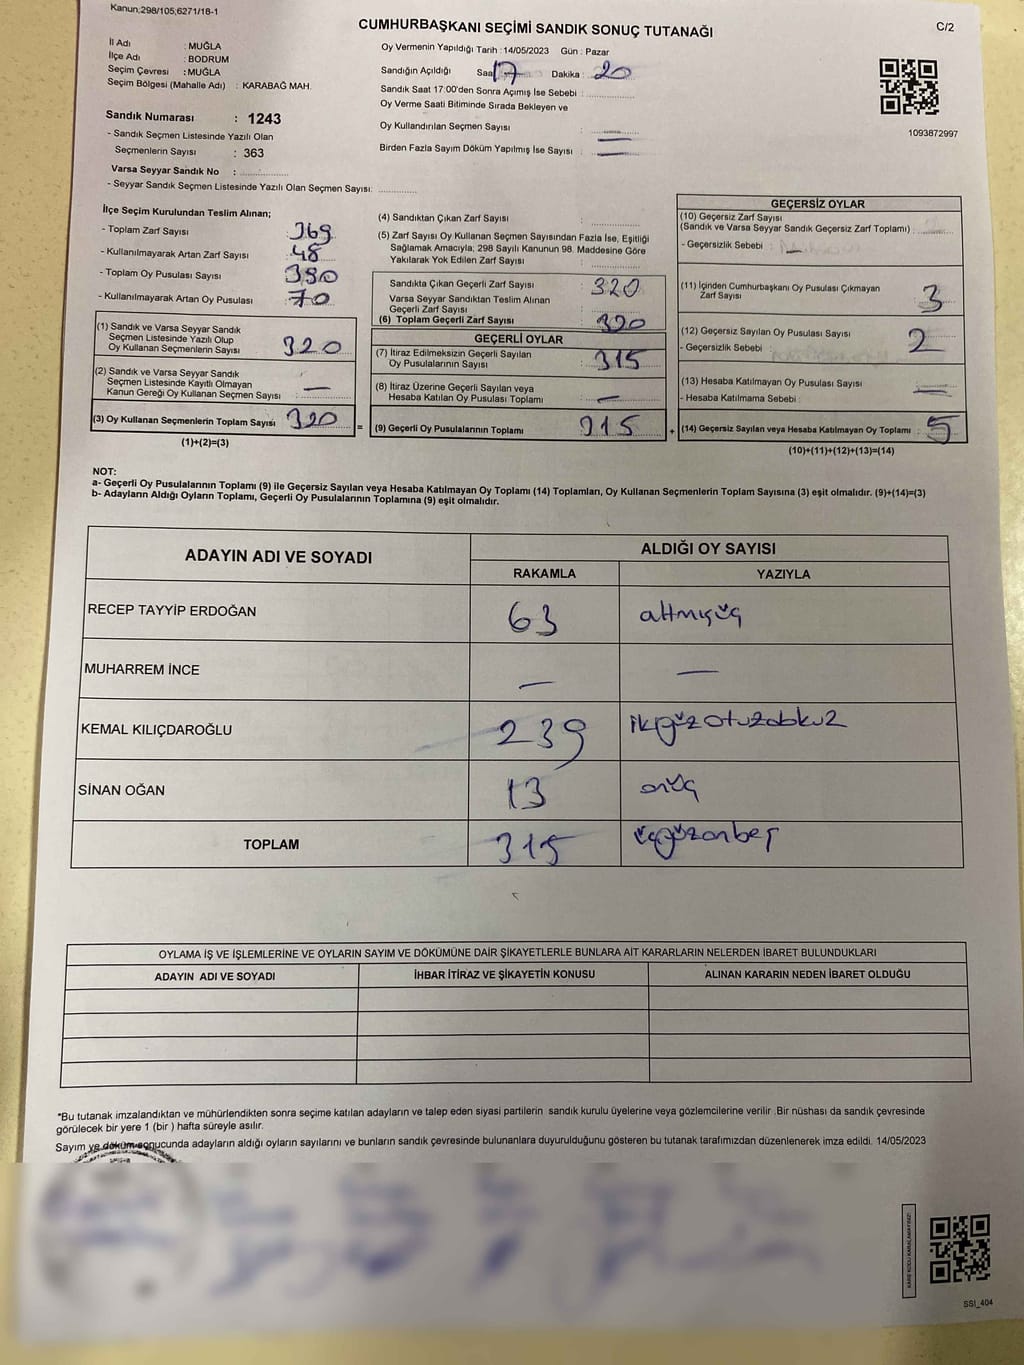 Kanun;298/105,6271/18-1
CUMHURBAŞKANI SEÇİMİ SANDIK SONUÇ TUTANAĞI
C/2
İl Adı : MUĞLA
İlçe Adı : BODRUM
Seçim Çevresi : MUĞLA
Seçim Bölgesi (Mahalle Adı) : KARABAĞ MAH.
Oy Vermenin Yapıldığı Tarih : 14/05/2023 Gün : Pazar
Sandığın Açıldığı Saat 17 Dakika : 20
Sandık Saat 17:00'den Sonra Açımış İse Sebebi :
Oy Verme Saati Bitiminde Sırada Bekleyen ve
Oy Kullandırılan Seçmen Sayısı :
Birden Fazla Sayım Döküm Yapılmış İse Sayısı :
1093872997
Sandık Numarası : 1243
- Sandık Seçmen Listesinde Yazılı Olan
Seçmenlerin Sayısı : 363
Varsa Seyyar Sandık No :
- Seyyar Sandık Seçmen Listesinde Yazılı Olan Seçmen Sayısı:
İlçe Seçim Kurulundan Teslim Alınan;
- Toplam Zarf Sayısı 369
- Kullanılmayarak Artan Zarf Sayısı : 48
- Toplam Oy Pusulası Sayısı : 390
- Kullanılmayarak Artan Oy Pusulası : 70
(1) Sandık ve Varsa Seyyar Sandık
Seçmen Listesinde Yazılı Olup
Oy Kullanan Seçmenlerin Sayısı : 320
(2) Sandık ve Varsa Seyyar Sandık
Seçmen Listesinde Kayıtlı Olmayan
Kanun Gereği Oy Kullanan Seçmen Sayısı : —
(3) Oy Kullanan Seçmenlerin Toplam Sayısı : 320
(1)+(2)=(3)
(4) Sandıktan Çıkan Zarf Sayısı :
(5) Zarf Sayısı Oy Kullanan Seçmen Sayısından Fazla İse, Eşitliği
Sağlamak Amacıyla; 298 Sayılı Kanunun 98. Maddesine Göre
Yakılarak Yok Edilen Zarf Sayısı :
Sandıkta Çıkan Geçerli Zarf Sayısı : 320
Varsa Seyyar Sandıktan Teslim Alınan
Geçerli Zarf Sayısı :
(6) Toplam Geçerli Zarf Sayısı : 320
GEÇERLİ OYLAR
(7) İtiraz Edilmeksizin Geçerli Sayılan
Oy Pusulalarının Sayısı : 315
(8) İtiraz Üzerine Geçerli Sayılan veya
Hesaba Katılan Oy Pusulası Toplamı : —
= (9) Geçerli Oy Pusulalarının Toplamı : 315
GEÇERSİZ OYLAR
(10) Geçersiz Zarf Sayısı
(Sandık ve Varsa Seyyar Sandık Geçersiz Zarf Toplamı) :
- Geçersizlik Sebebi : —
(11) İçinden Cumhurbaşkanı Oy Pusulası Çıkmayan
Zarf Sayısı : 3
(12) Geçersiz Sayılan Oy Pusulası Sayısı : 2
- Geçersizlik Sebebi :
(13) Hesaba Katılmayan Oy Pusulası Sayısı :
- Hesaba Katılmama Sebebi :
+ (14) Geçersiz Sayılan veya Hesaba Katılmayan Oy Toplamı : 5
(10)+(11)+(12)+(13)=(14)
NOT:
a- Geçerli Oy Pusulalarının Toplamı (9) ile Geçersiz Sayılan veya Hesaba Katılmayan Oy Toplamı (14) Toplamları, Oy Kullanan Seçmenlerin Toplam Sayısına (3) eşit olmalıdır. (9)+(14)=(3)
b- Adayların Aldığı Oyların Toplamı, Geçerli Oy Pusulalarının Toplamına (9) eşit olmalıdır.
ADAYIN ADI VE SOYADI ALDIĞI OY SAYISI
RAKAMLA YAZIYLA
RECEP TAYYİP ERDOĞAN 63 altmışüç
MUHARREM İNCE — —
KEMAL KILIÇDAROĞLU 239 ikiyüzotuzdokuz
SİNAN OĞAN 13 onüç
TOPLAM 315 üçyüzonbeş
OYLAMA İŞ VE İŞLEMLERİNE VE OYLARIN SAYIM VE DÖKÜMÜNE DAİR ŞİKAYETLERLE BUNLARA AİT KARARLARIN NELERDEN İBARET BULUNDUKLARI
ADAYIN ADI VE SOYADI İHBAR İTİRAZ VE ŞİKAYETİN KONUSU ALINAN KARARIN NEDEN İBARET OLDUĞU
*Bu tutanak imzalandıktan ve mühürlendikten sonra seçime katılan adayların ve talep eden siyasi partilerin sandık kurulu üyelerine veya gözlemcilerine verilir .Bir nüshası da sandık çevresinde
görülecek bir yere 1 (bir ) hafta süreyle asılır.
Sayım ve döküm sonucunda adayların aldığı oyların sayılarını ve bunların sandık çevresinde bulunanlara duyurulduğunu gösteren bu tutanak tarafımızdan düzenlenerek imza edildi. 14/05/2023
SSI_404